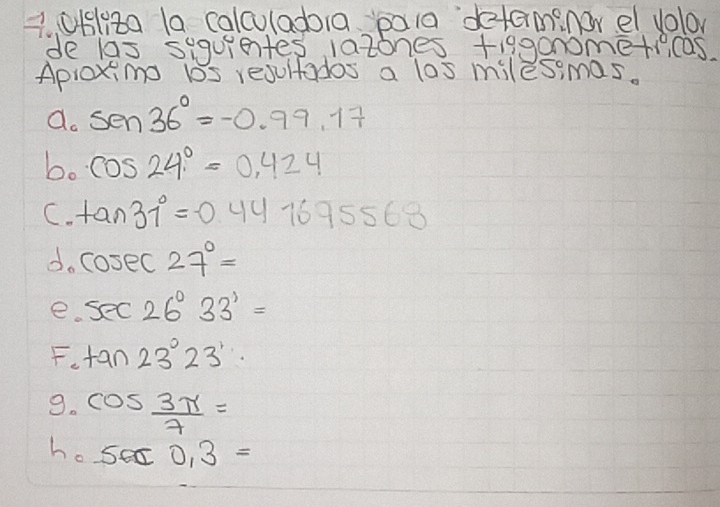 1. Utiliza la calculadora para determinar el valor
de las siguientes razones trigonométricas.
Aproxima los resultados a las milésimas.
a. sen 36° = -0.99.17
b. cos 24° = 0,424
c. tan 31° = -0.441695568
d. cosec 27° =
e. sec 26° 33' =
F. tan 23° 23'.
g. cos 3π/7 =
h. sec 0,3 =